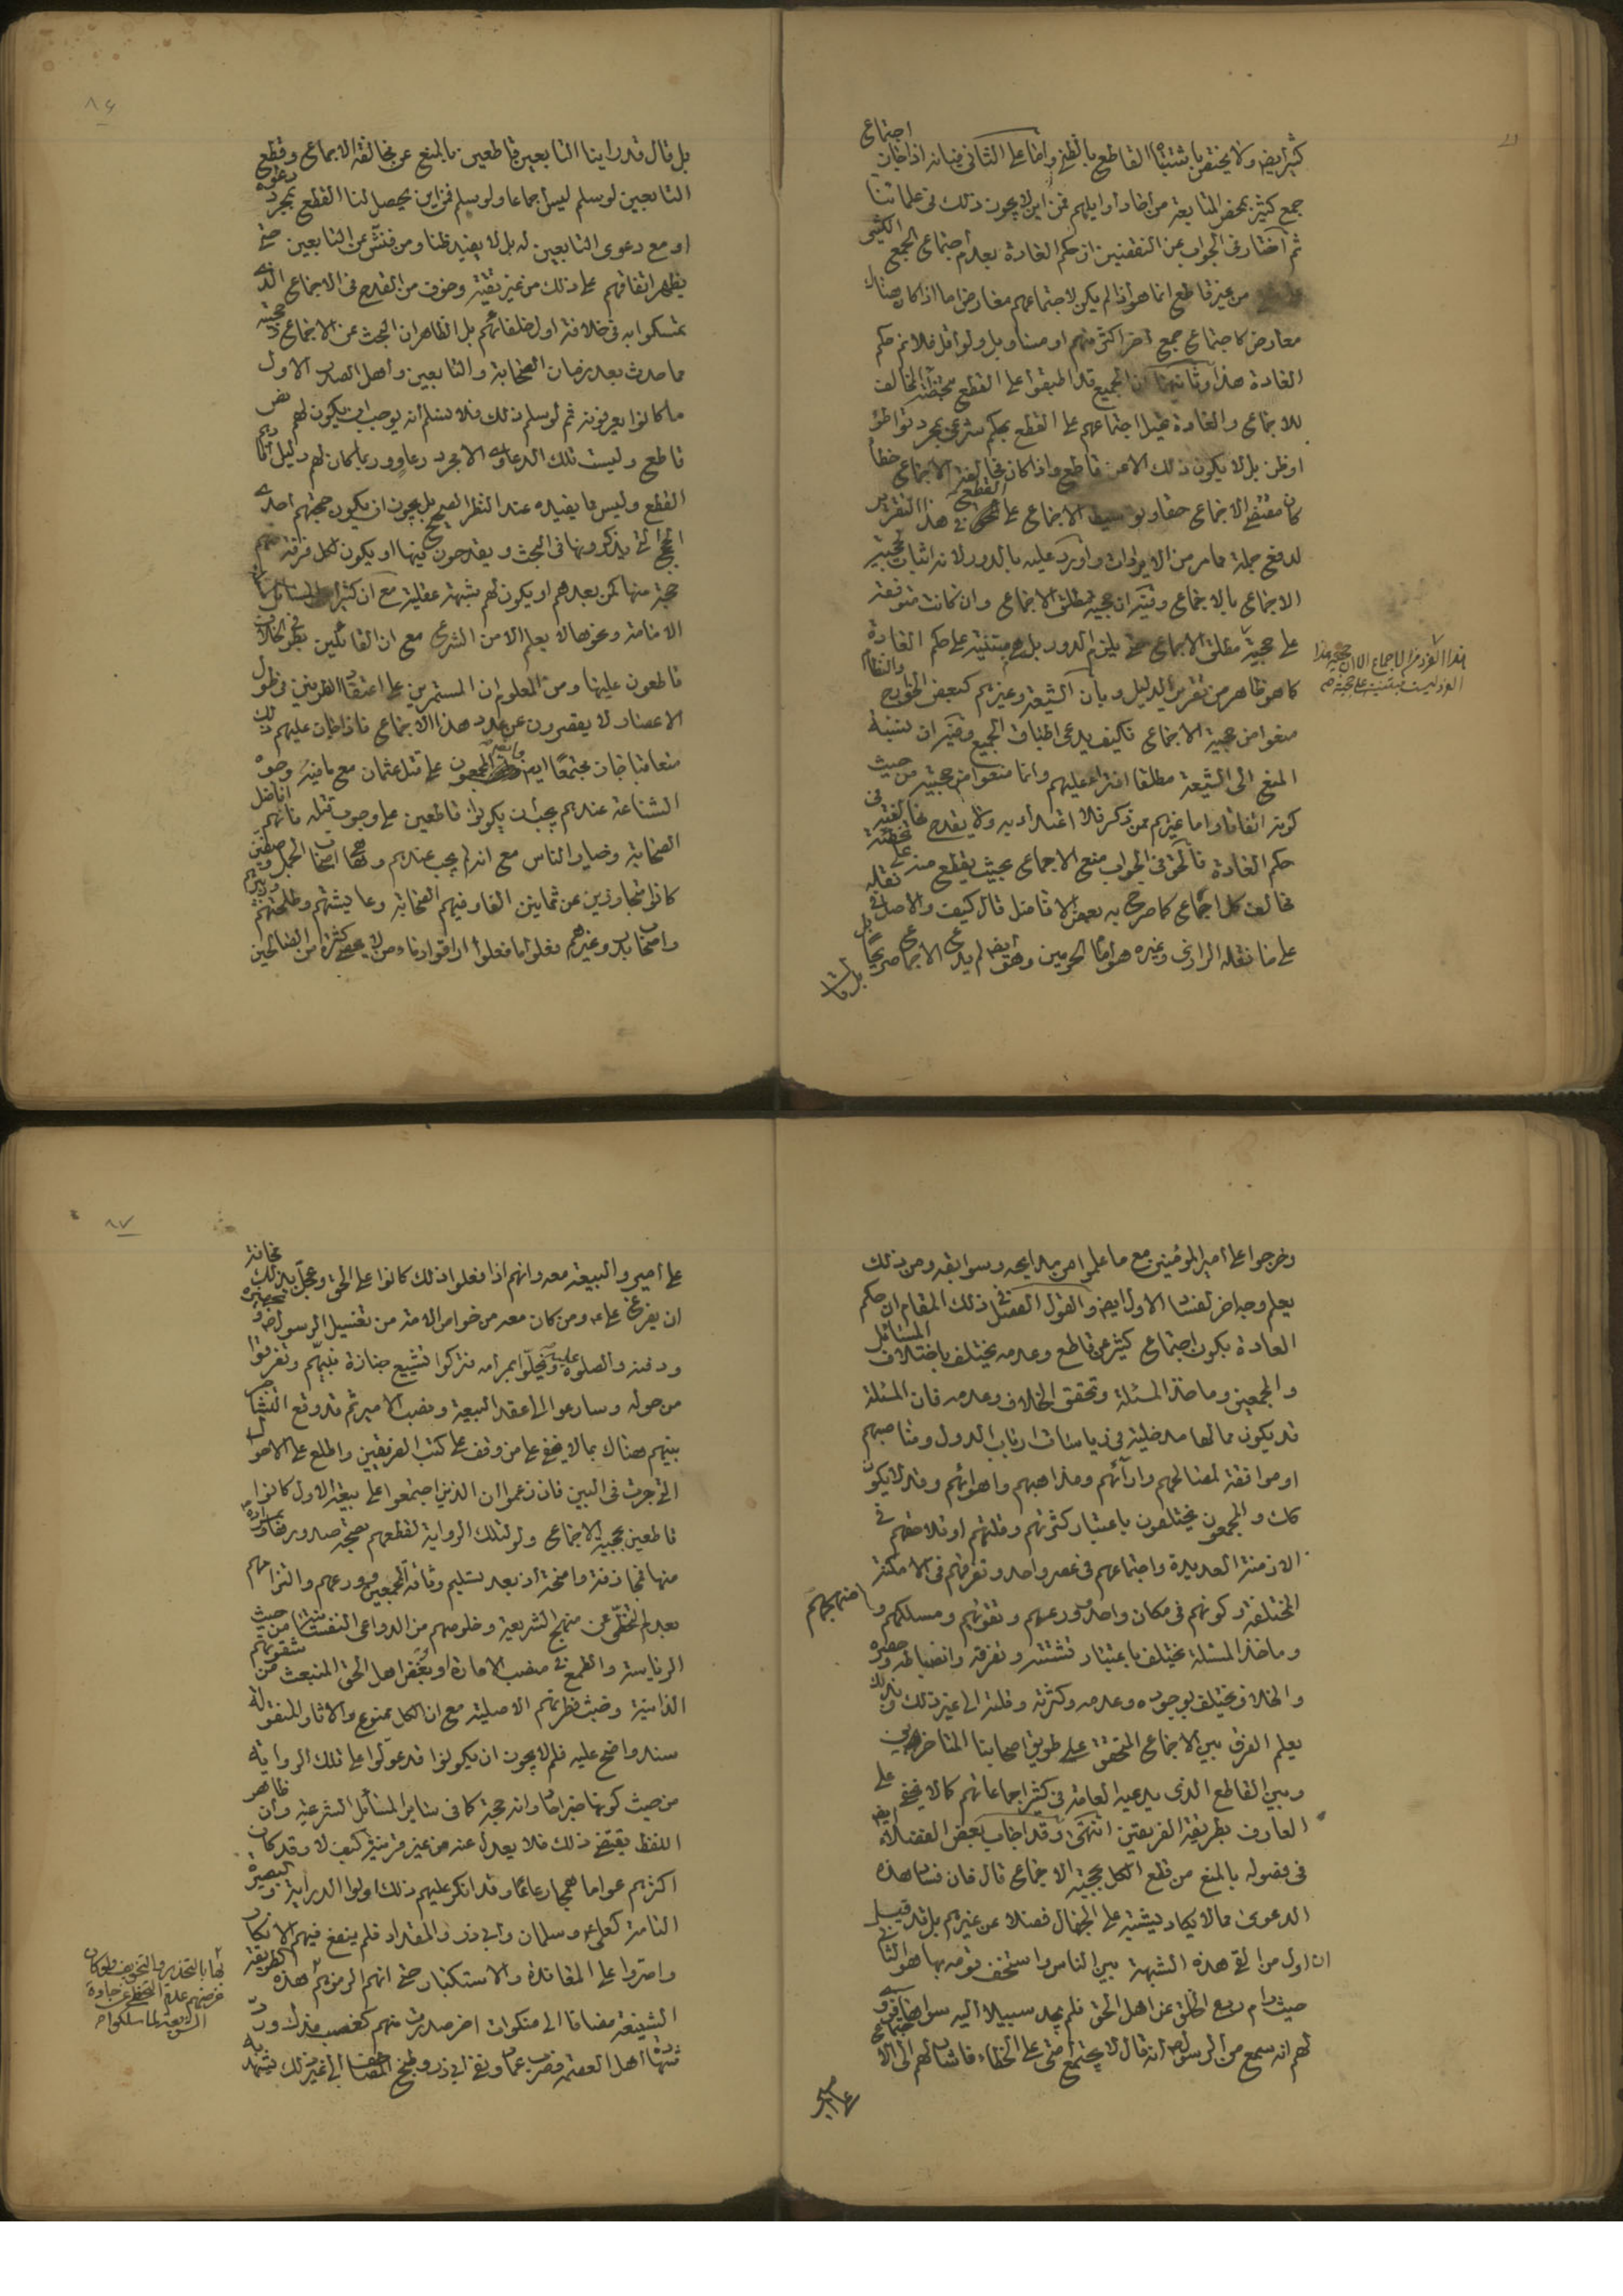 كثير ايضا ولا يختص باشتباه القاطع بالظني واما على الثاني فبانه اذا جاز اجتماع
جمع كثير بمحض المتابعة من آحاد أوايلهم فمن اين لا يجوز ذلك في علمائنا
ثم اختار في الجواب عن النقضين ان حكم العادة بعدم اجتماع الجمع الكثير
من غير قاطع انما هو اذا لم يكن لاجتماعهم معارض اما اذا كان هناك
معارض كاجتماع جمع آخر اكثر منهم او مساو بل ولو اقل فلا نم حكم
العادة هذا وثانيهما ان الجميع قد اطبقوا على القطع بتخطئة المخالف
للاجماع والعادة تحيل اجتماعهم على القطع بحكم شرعي بمجرد تواطؤ
او ظن بل لا يكون ذلك الا عن قاطع واذا كان مخالفة الاجماع خطأ
كان مقتضى الاجماع حقا وتوسيط الاجماع على القطع في هذا التقرير
لدفع جملة مما مر من الايرادات واورد عليه بالدور لانه اثبات لحجية
الاجماع بالاجماع وفيه ان حجية مطلق الاجماع وان كانت متوقفة
على حجية مطلق الاجماع حتى يلزم الدور بل هي مبتنية على حكم العادة
هذا الفرد من الاجماع الا ان حجية هذا
الفرد ليست مبتنية على حجية صح
كما هو ظاهر من تقرير الدليل وبأن الشيعة وغيرهم كبعض الخوارج والنظام
منعوا من حجية الاجماع فكيف يدعى اطباق الجميع وفيه ان نسبة
المنع الى الشيعة مطلقا افتراء عليهم وانما منعوا من حجيته من حيث
كونه اتفاقا واما غيرهم ممن ذكر فلا اعتداد به ولا يقدح مخالفته في
حكم العادة فالحق في الجواب منع الاجماع بحيث يقطع منه على تخطئة
مخالف كل اجماع كما صرح به بعض الافاضل قال كيف والاصل في نقله
على ما نقله الرازي وغيره هو امام الحرمين وهو ايضا لم يدع الاجماع صريحا بل
بل قال
٨٦
بل قال قد راينا التابعين قاطعين بالمنع عن مخالفة الاجماع وقطع
التابعين لو سلم ليس اجماعا ولو سلم فمن اين يحصل لنا القطع بمجرد دعواه
او مع دعوى التابعين له بل لا يفيد ظنا ومن فتش عن التابعين حتى
يظهر اتفاقهم على ذلك من غير تقية وخوف من القدح في الاجماع الذي
تمسكوا به في خلافة اول خلفائهم بل الظاهر ان البحث عن الاجماع وحجيته
مما حدث بعد زمان الصحابة والتابعين وأهل الصدر الاول
ما كانوا يعرفونه ثم لو سلم ذلك فلا نسلم انه يوجب ان يكون لهم نص
قاطع وليست تلك الدعاوي الا مجرد دعاو وربما كان لهم دليل
القطع وليس ما يفيده عند النظر الصحيح بل يجوز ان يكون حجتهم احدى
الحجج التي يذكرونها في البحث ويقدحون فيها او يكون لكل فرقة منهم
حجة منها كمن بعدهم او يكون لهم شبهة عقلية مع ان كثيرا من المسائل
الامامة ونحوها لا يعلم الا من الشرع مع ان القائلين بطرفي الخلاف
قاطعون عليها ومن المعلوم ان المستمرين على اعتقاد الفريقين في طول
الاعصار لا يقصرون عن عدد هذا الاجماع فاذا جاز عليهم ذلك
متعاقبا جاز مجتمعا ايضا المجمعون على قتل عثمان مع ما فيه وجوه
الشناعة عندهم يجب ان يكونوا قاطعين على وجوب قتله فانهم افاضل
الصحابة وخيار الناس مع انه لم يجب عندهم وهكذا اصحاب الجمل وصفين
كانوا متجاوزين عن ثمانين الفا وفيهم الصحابة وعايشتهم وطلحتهم وزبيرهم
واصحاب بدر وغيرهم فعلوا ما فعلوا اراقوا دماء من لا يحصى كثرة من الصالحين
وخرجوا على أمير المؤمنين مع ما علموا من مدايحه وسوابقه ومن ذلك
يعلم وجه اخر لفساد الاول ايضا والقول الفصل في ذلك المقام ان حكم
العادة بكون اجتماع كثير عن قاطع وعدمه يختلف باختلاف المسائل
والمجمعين وماخذ المسئلة وتحقق الخلاف وعدمه فان المسئلة
قد يكون مما لها مدخلية في رياسات ارباب الدول ومناصبهم
او موافقة لمصالحهم وارآئهم ومذاهبهم واهوائهم وقد لا يكون
كك والمجمعون يختلفون باعتبار كثرتهم وقلتهم او تلاحقهم في
الازمنة العديدة واجتماعهم في عصر واحد وتفرقهم في الامكنة
المختلفة وكونهم في مكان واحد وورعهم وتقوتهم ومسلكهم ومنهجهم
وماخذ المسئلة يختلف باعتبار تشتته وتفرقه وانضباطه وحصره
والخلاف يختلف بوجوده وعدمه وكثرته وقلته الى غير ذلك وبذلك
يعلم الفرق بين الاجماع المتحقق على طريق اصحابنا المتاخرين
وبين القاطع الذي يدعيه العامة في كثير اجماعاتهم كما لا يخفى على
العارف بطريقة الفريقين انتهى وقد اجاب بعض الفضلاء ايضا
في فصوله بالمنع من قطع الكل بحجية الاجماع قال فان فساد هذه
الدعوى مما لا يكاد يشتبه على الجهال فضلا عن غيرهم بل قد قيل
ان اول من القى هذه الشبهة بين الناس واستخف قومه بها هو الثاني
حيث رام ردع الخلق عن اهل الحق فلم يجد سبيلا اليه سواها فروى
لهم انه سمع من الرسول انه قال لا يجتمع امتي على الخطاء فاشار لهم الى الاجتماع
على امير
٨٧
على امير والبيعة معه وانهم اذا فعلوا ذلك كانوا على الحق وعجل بذلك مخافة
ان يفرغ علي ومن كان معه من خواص الامة من تغسيل الرسول وتجهيزه
ودفنه والصلوة عليه فيخلوا بمرامه فتركوا تشييع جنازة نبيهم وتفرقوا
من حوله وسارعوا الى عقد البيعة ونصب الامير ثم قد وقع التشاجر
بينهم هناك بما لا يخفى على من وقف على كتب الفريقين واطلع على الاحوال
التي جرت في البين فان زعموا ان الذين اجتمعوا على بيعة الاول كانوا
قاطعين بحجية الاجماع ولو لتلك الرواية لقطعهم بصحة صدورها
منها فمجازفة واضحة اذ بعد تسليم وثاقة المجمعين وورعهم والتزامهم
بعدم التخطي عن منهج الشريعة وخلوصهم من الدواعي النفسانية من حيث
الرياسة والطمع في منصب الامارة او بغض اهل الحق المنبعث من شقوتهم
الذاتية وخبث فطرتهم الاصلية مع ان الكل ممنوع والاثار المنقولة
سند واضح عليه فلم لا يجوز ان يكونوا قد عولوا على تلك الرواية
من حيث كونها خبر احاد وانه حجة كما في ساير المسائل الشرعية وان ظاهر
اللفظ يقتضي ذلك فلا يعدل عنه من غير قرينة كيف لا وقد كان
اكثرهم عواما همجا رعاعا وقد انكر عليهم ذلك اولوا الدراية والبصيرة
التامة كعلي وسلمان وأبي ذر والمقداد فلم ينفع فيهم الانكار
واصروا على المعاندة والاستكبار حتى انهم الزموهم هذه الطريقة
بها بالتحذير والتخويف ولو كان
غرضهم عدم التخطي عن جادة
الشريعة لما سلكوا
الشنيعة مضافا الى منكرات اخر صدرت منهم كغصب فدك ورد
شهادة اهل العصمة وضرب عمار ونفي ابي ذر وطبخ المصاحف الى غير ذلك يشهد به